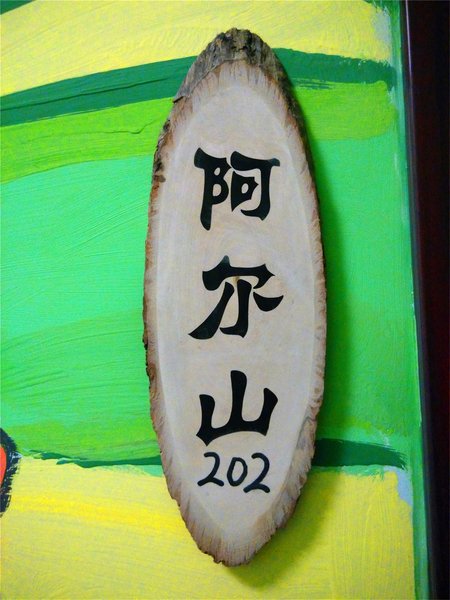 阿尔山
202